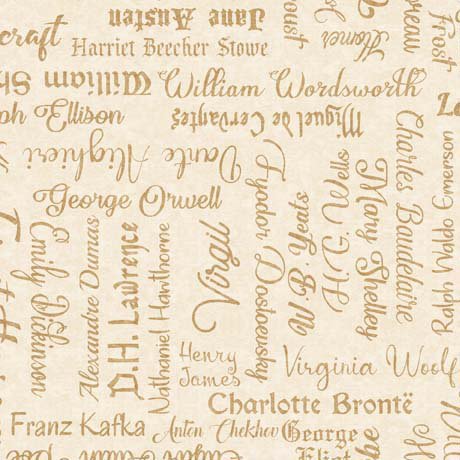 Jane Austen
Homer
Frost
Harriet Beecher Stowe
William
William Wordsworth
Ellison
Miguel de Cervantes
Dante Alighieri
George Orwell
Charles Baudelaire
Ralph Waldo Emmerson
Emily Dickinson
Alexandre Dumas
D.H. Lawrence
Nathaniel Hawthorne
Virgil
Fyodor Dostoevsky
W B Yeats
H.G. Wells
Mary Shelley
Henry
James
Virginia Woolf
Charlotte Brontë
Franz Kafka
Anton Chekhov
George
Eliot